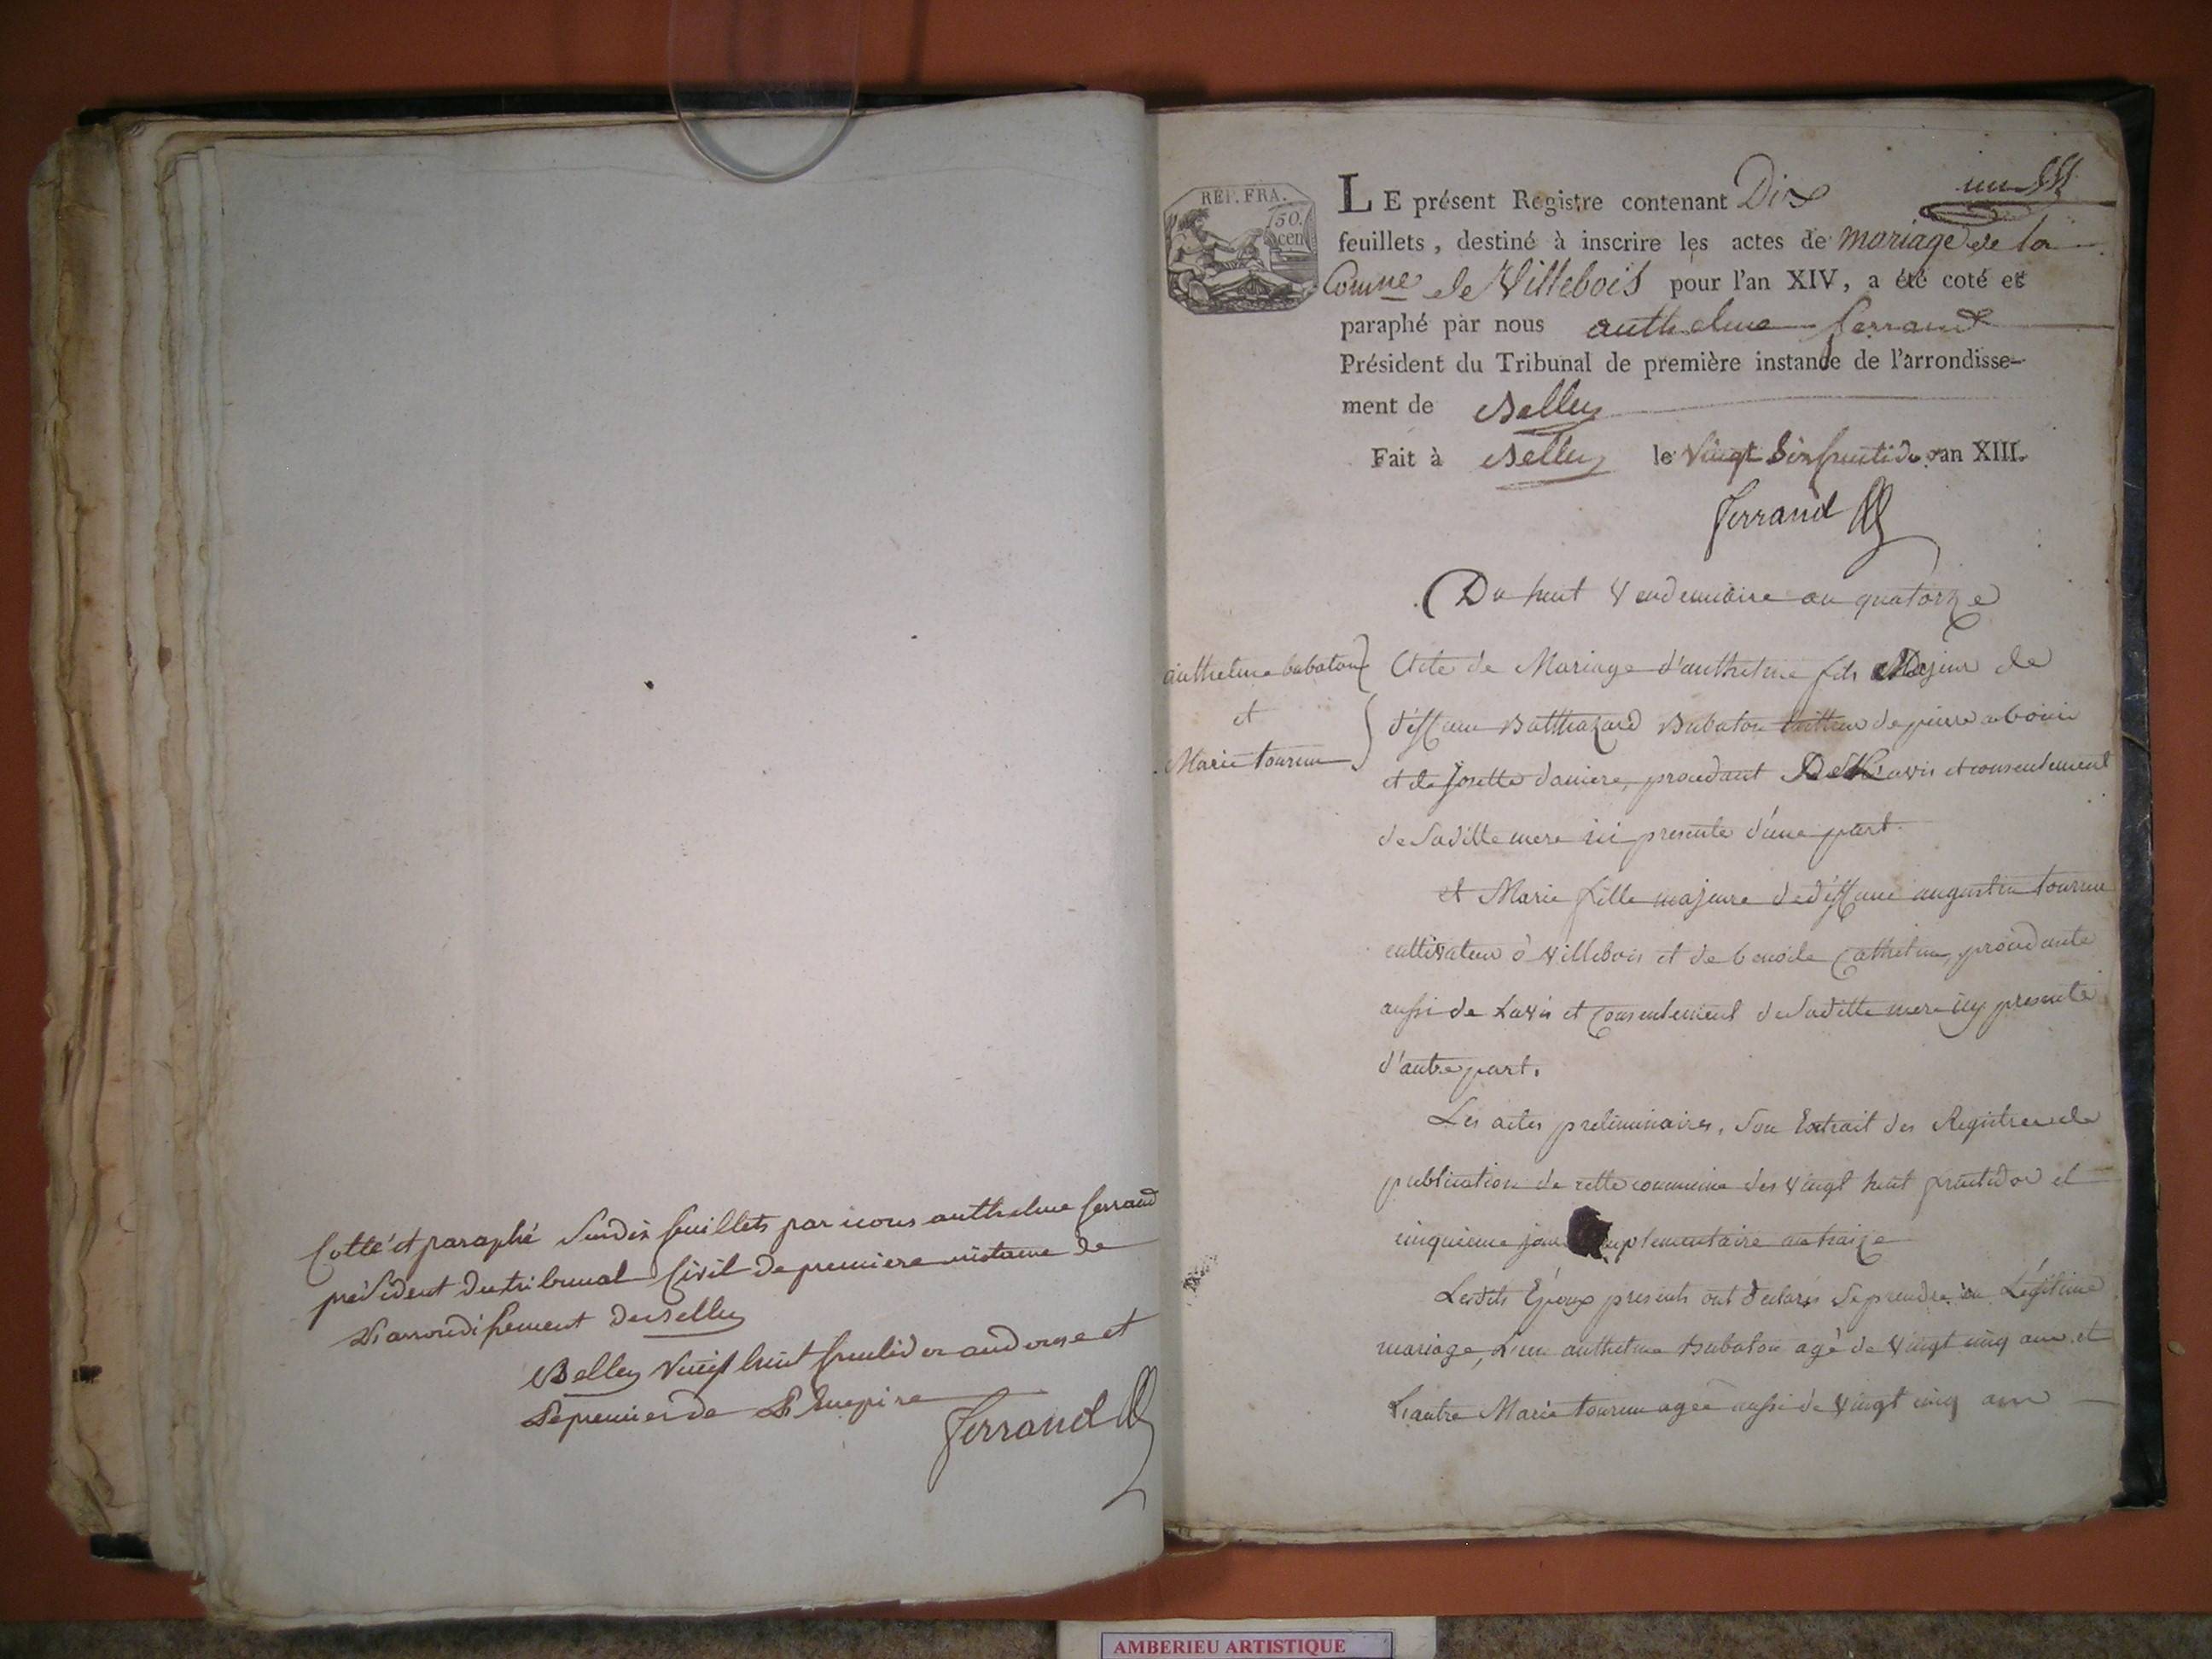 Cotté et paraphé Surdix feuillets par nous anthelme ferrand
président du tribunal Civil de premiere instance de
L'arrondissement de Belley
Belley Vingt huit fructidor an douze et
Le premier de L'Empire
Ferrand
REP. FRA.
50.
cen
un
LE présent Registre contenant Dix
feuillets, destiné à inscrire les actes de mariage de la
Comne de Villebois pour l'an XIV, a été coté et
paraphé par nous anthelme ferrand
Président du Tribunal de première instance de l'arrondisse-
ment de Belley
Fait à Belley le Vingt Six fructidor an XIII.
Ferrand
Du huit Vendemiaire an quatorze
anthelme babaton
et
Marie tournu
Acte de Mariage d'anthelme fils Majeur de
déffunt Balthazard Babaton tailleur de pierre a bouis
et de Josette daniere, procedant De L'avis et consentement
de Saditte mere ici presente d'une part.
et Marie fille majeure de déffunt augustin tournu
cultivateur à Villebois et de benoite Cathelme, procedante
aussi de L'avis et Consentement de Saditte mere icy presente
d'autre part.
Les actes preliminaires, Son Extrait des Registres de
publication de cette commune des Vingt huit fructidor et
cinquieme jour complementaire an traize
Lesdits Époux presents ont declarés Se prendre en Légitime
mariage, L'un anthelme Babaton agé de Vingt cinq ans et
L'autre Marie tournu agée aussi de Vingt cinq ans
AMBERIEU ARTISTIQUE